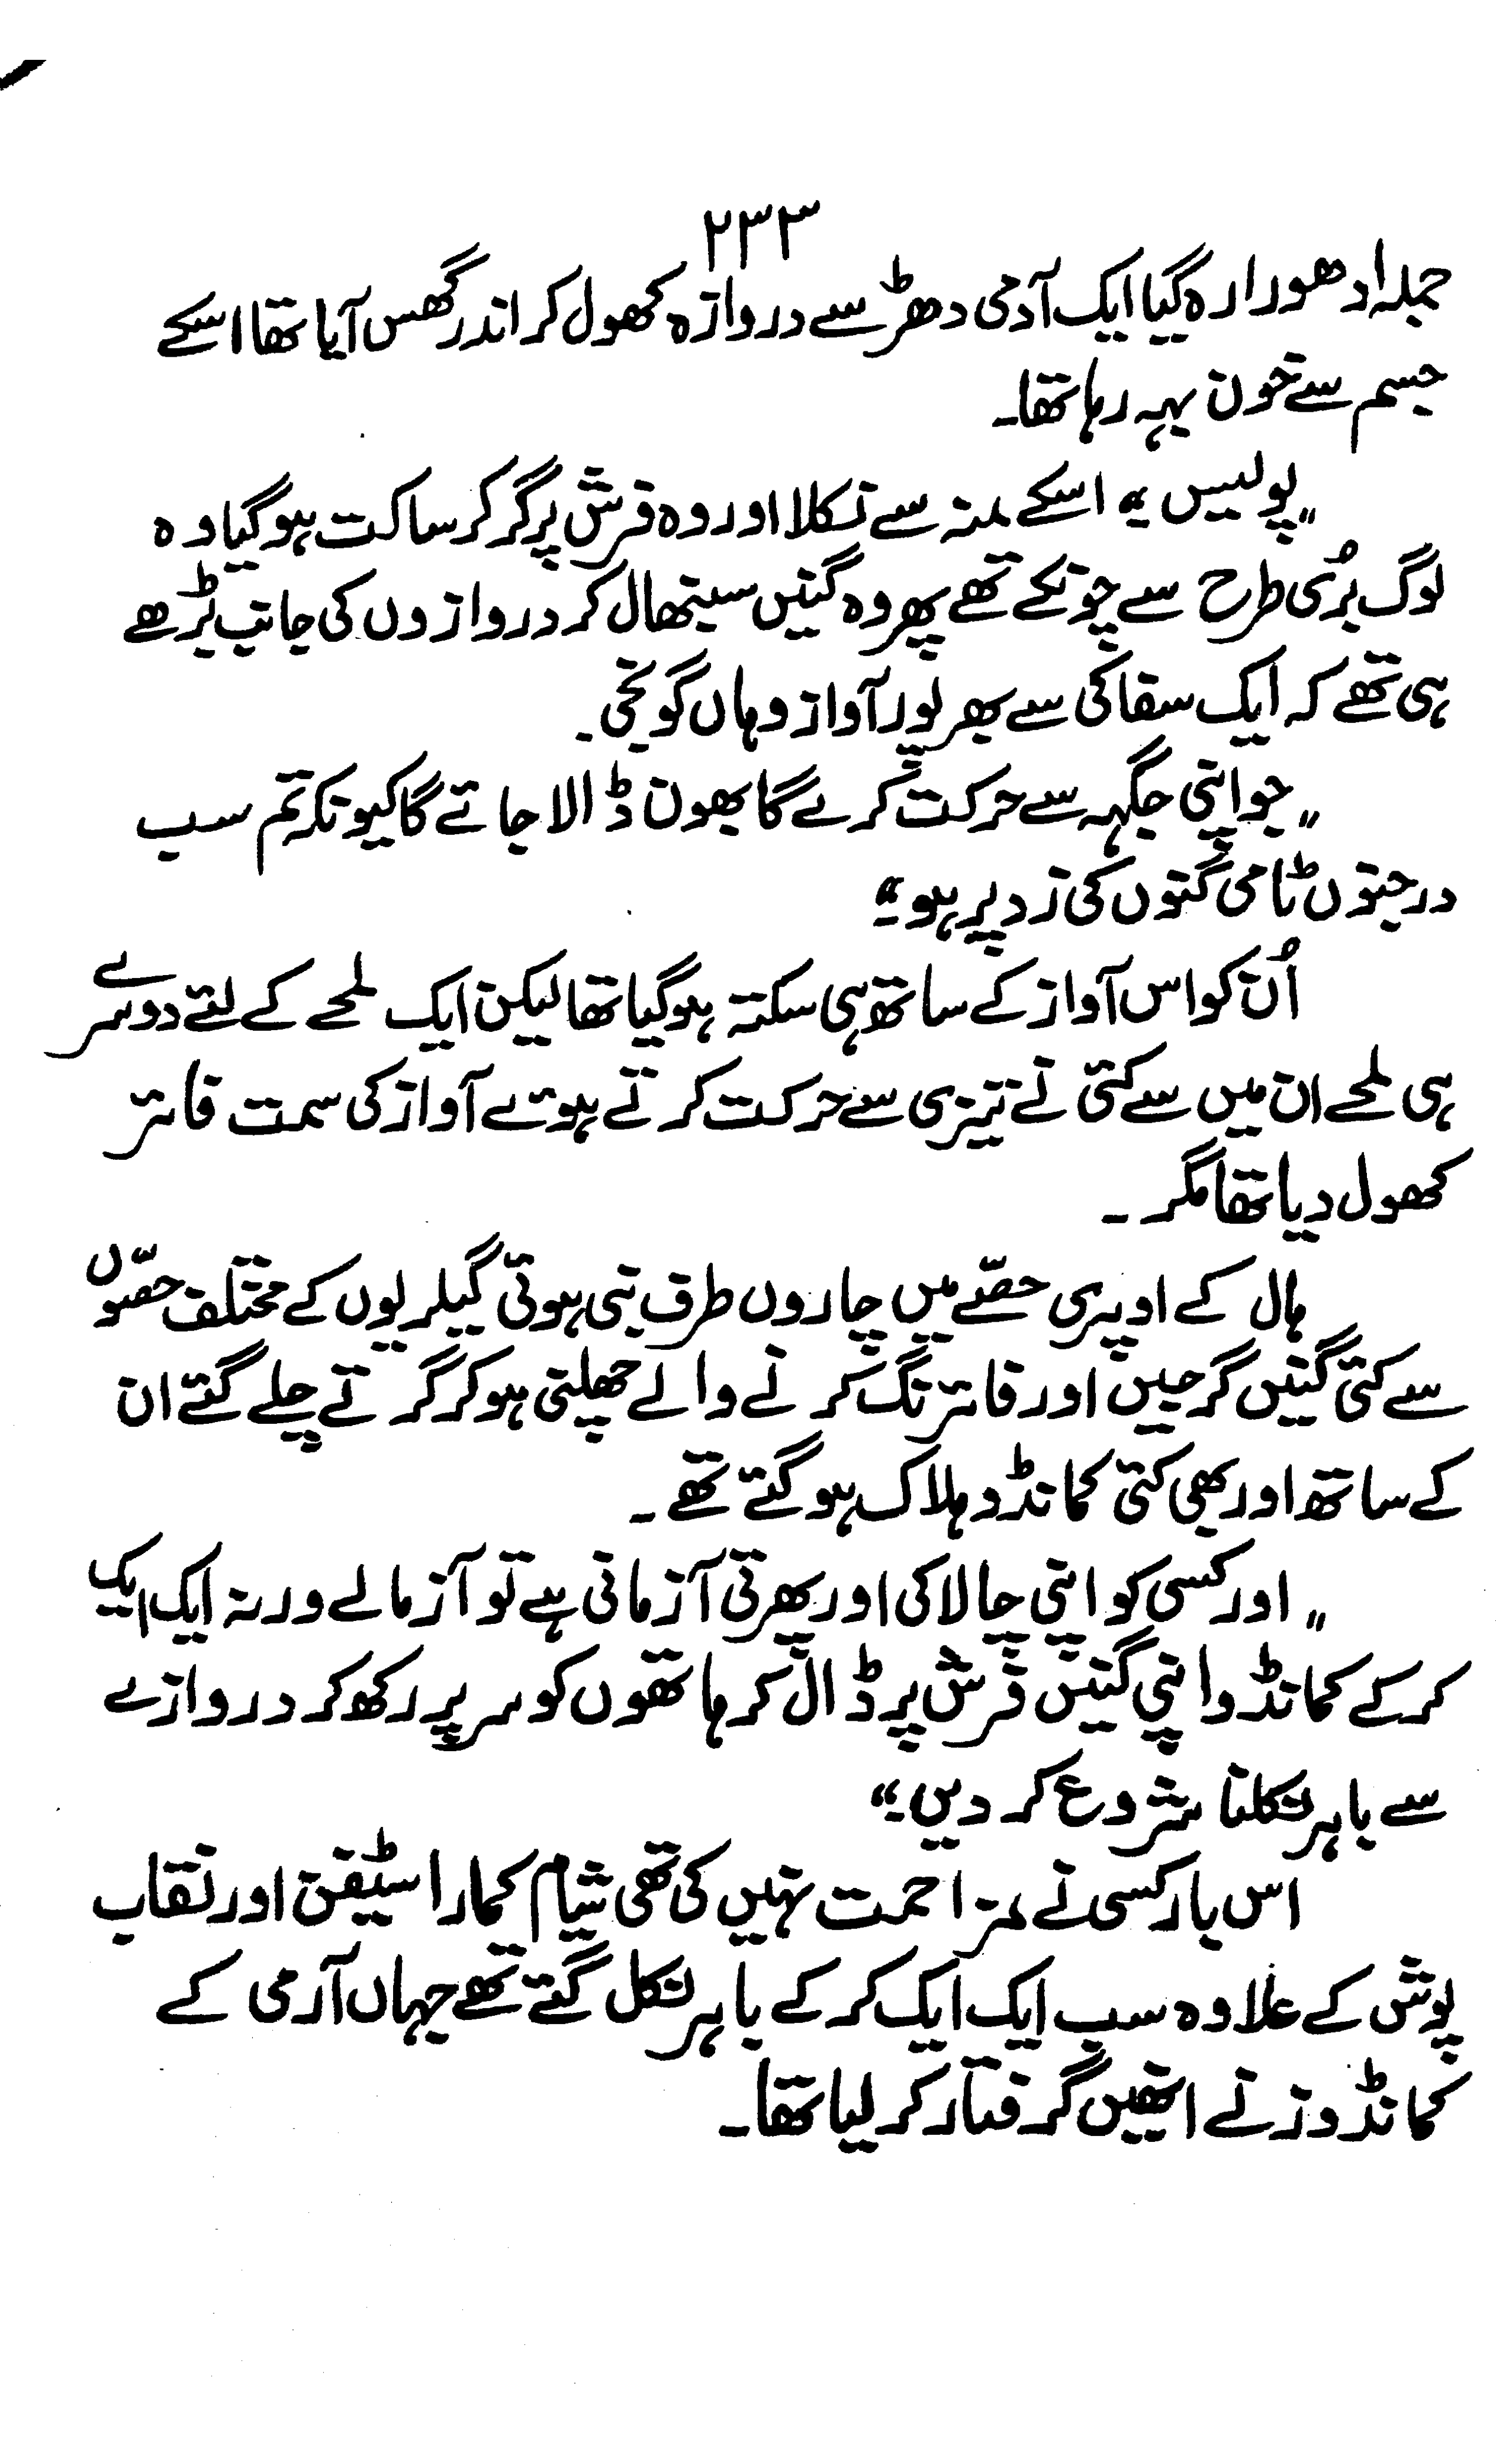 ۲۳۳
جملہ ادھورا رہ گیا ایک آدمی دھڑ سے دروازہ کھول کر اندر گھس آیا تھا اسکے
جسم سے خون بہہ رہا تھا۔
"پولیس" اسکے منہ سے نکلا اور وہ فرش پر گر کر ساکت ہو گیا وہ
لوگ بُری طرح سے چونکے تھے پھر وہ گنیں سنبھال کر دروازوں کی جانب بڑھے
ہی تھے کہ ایک سفاکی سے بھرپور آواز وہاں گونجی۔
"جو اپنی جگہہ سے حرکت کرے گا بھون ڈالا جائے گا کیونکہ تم سب
درجنوں ٹامی گنوں کی زد پر ہو۔"
اُن کو اس آواز کے ساتھ ہی سکتہ ہو گیا تھا لیکن ایک لمحے کے لئے دوسرے
ہی لمحے ان میں سے کئی نے تیزی سے حرکت کرتے ہوئے آواز کی سمت فائر
کھول دیا تھا مگر۔
ہال کے اوپری حصّے میں چاروں طرف بنی ہوئی گیلریوں کے مختلف حصّوں
سے کئی گنیں گرجیں اور فائرنگ کرنے والے چھلنی ہو کر گرتے چلے گئے ان
کے ساتھ اور بھی کئی کمانڈو ہلاک ہو گئے تھے۔
"اور کسی کو اپنی چالاکی اور پھرتی آزمانی ہے تو آزمالے ورنہ ایک ایک
کر کے کمانڈو اپنی گنیں فرش پر ڈال کر ہاتھوں کو سر پر رکھ کر دروازے
سے باہر نکلنا شروع کر دیں۔"
اس بار کسی نے مزاحمت نہیں کی تھی شیام کمار اسٹیفن اور نقاب
پوش کے علاوہ سب ایک ایک کر کے باہر نکل گئے تھے جہاں آرمی کے
کمانڈوز نے انھیں گرفتار کر لیا تھا۔